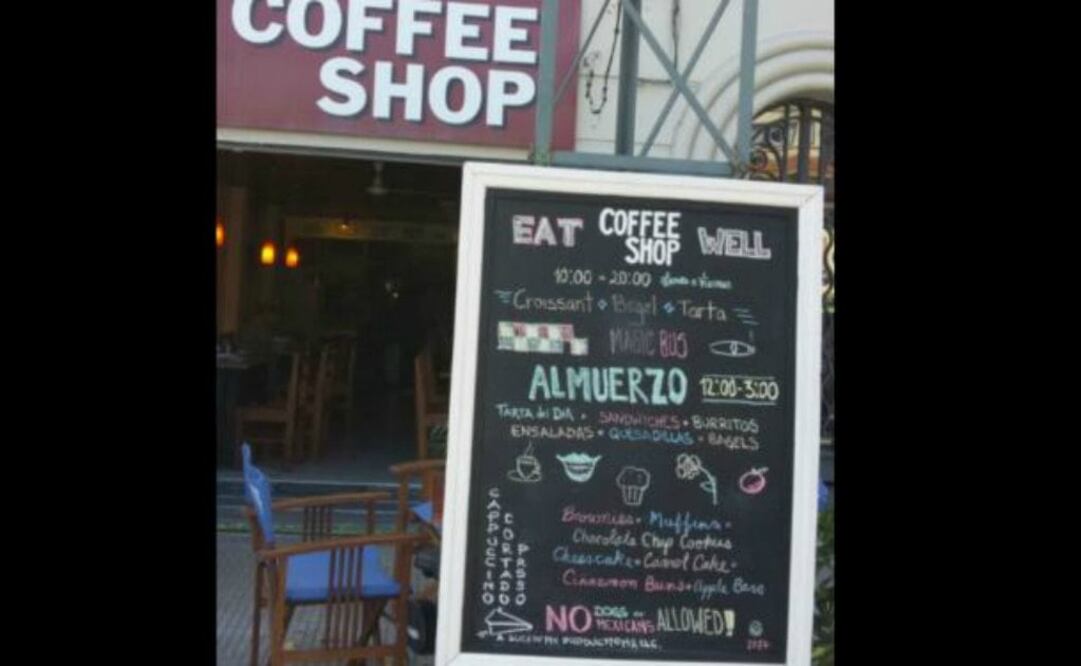 COFFEE
SHOP
EAT COFFEE SHOP WELL
10:00 - 20:00 Lunes a Viernes
Croissant Bagel Tarta
MAGIC BUS
ALMUERZO 12:00-3:00
TARTA del DIA • SANDWICHES • BURRITOS
ENSALADAS • QUESADILLAS • BAGELS
CAPPUCCINO
CORTADO
Brownies • Muffins •
Chocolate Chip Cookies
Cheescake • Carrot Cake •
Cinnamon Buns • Apple Bars
NO DOGS or MEXICANS ALLOWED!